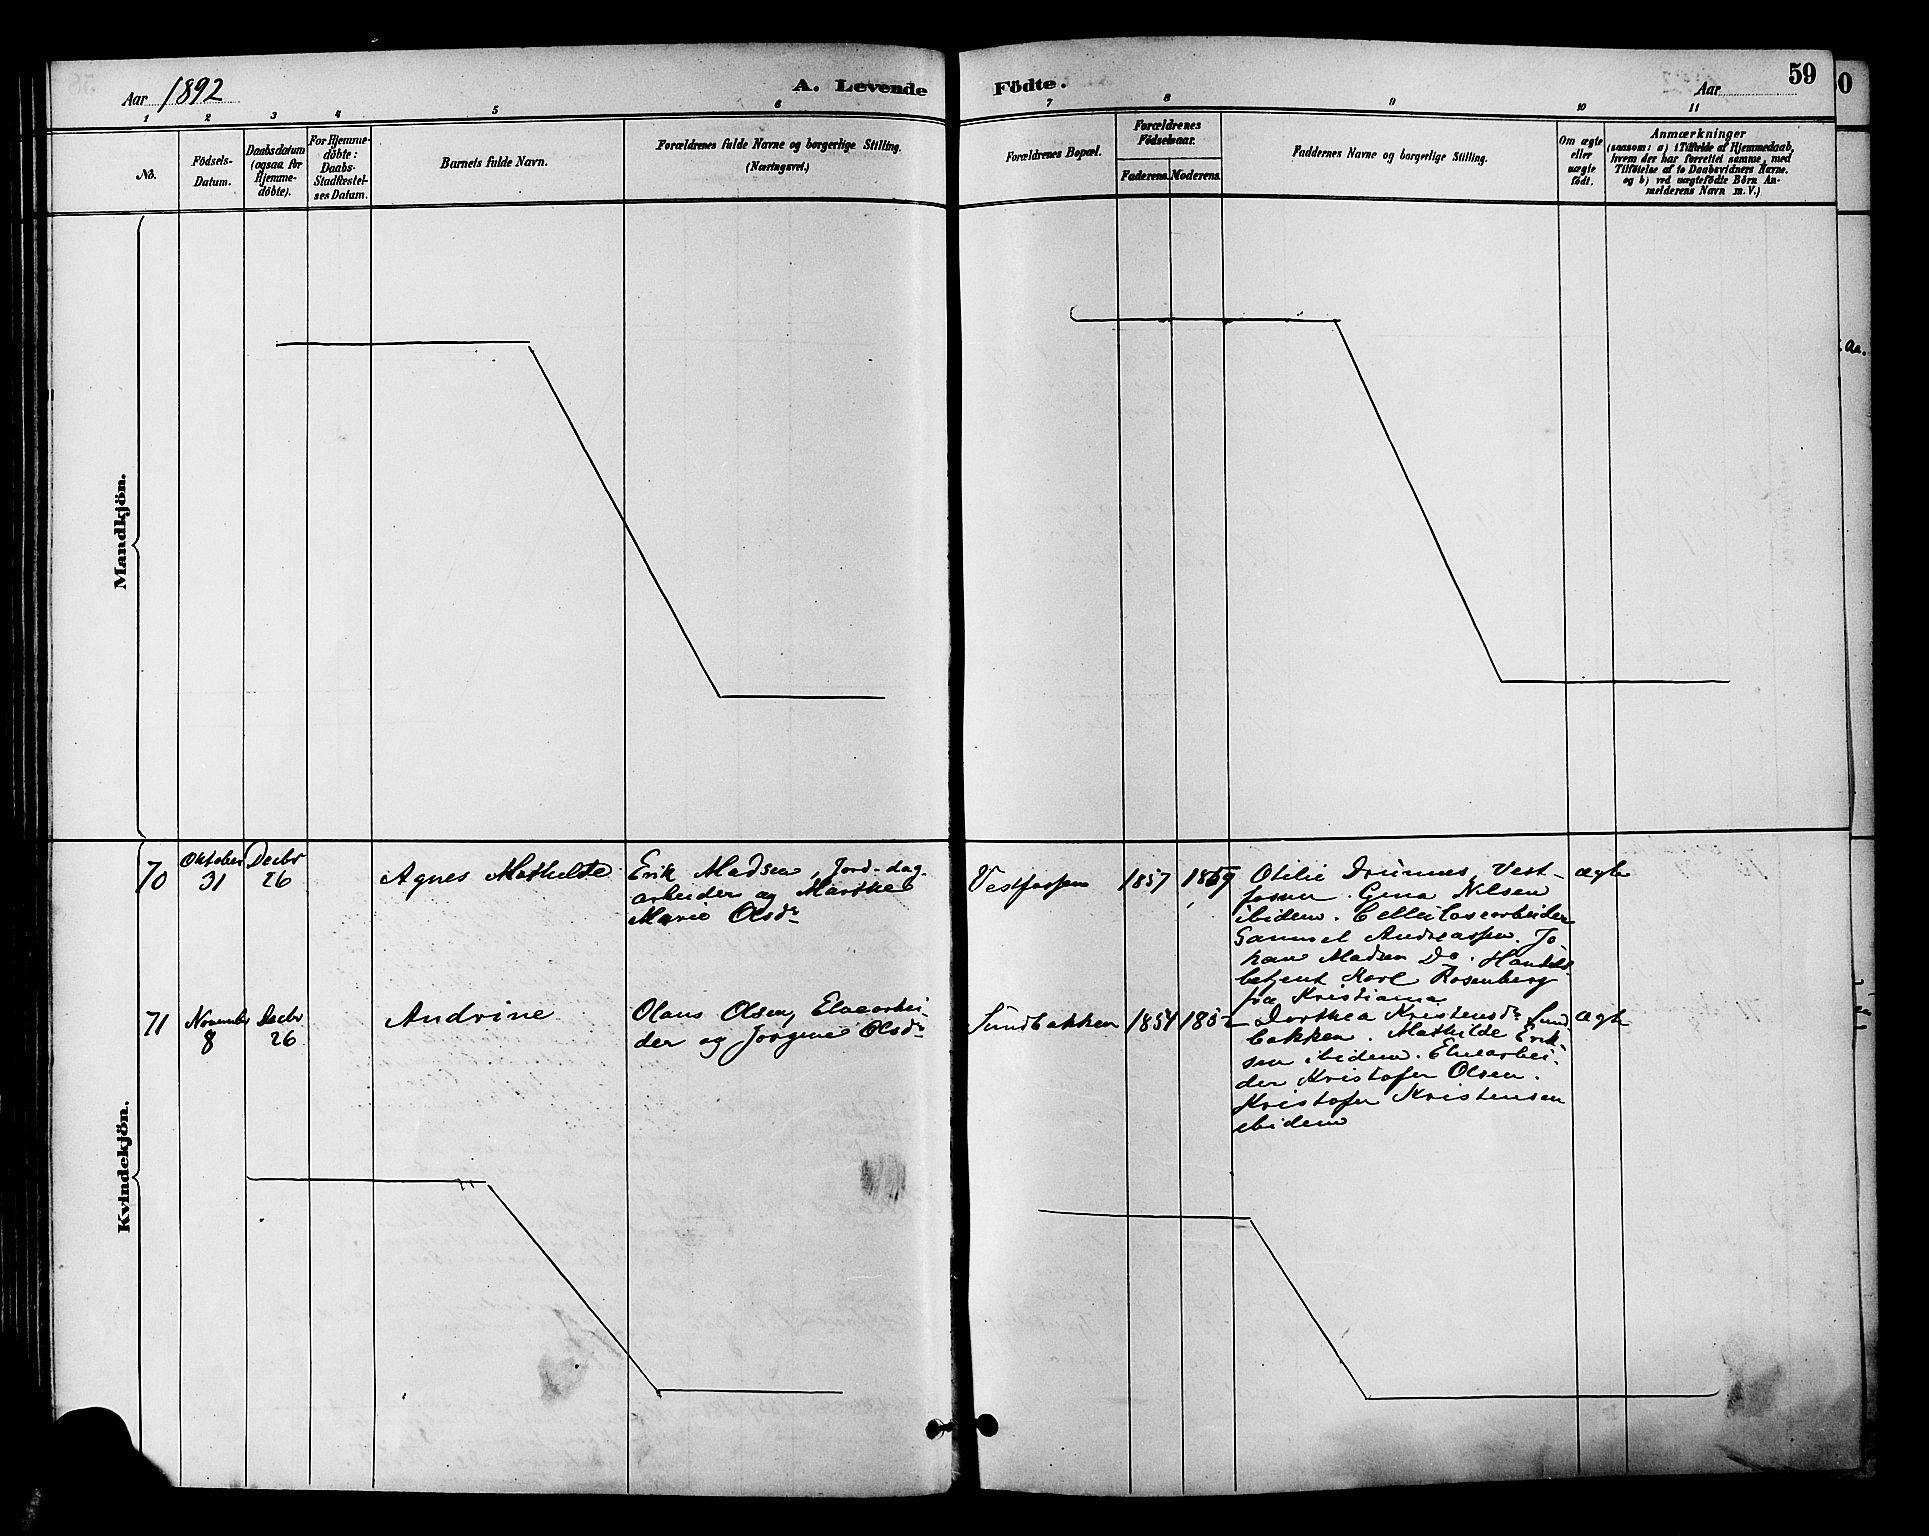 Aar 1892
A. Levende
Födte.
Aar
59
1 2 3 4 5 6 7 8 9 10 11
No.
Födsels-
Datum.
Daabsdatum
(ogsaa for
Hjemme-
döbte).
For Hjemme-
döbte:
Daabs-
Stadfæstel-
ses Datum.
Barnets fulde Navn.
Forældrenes fulde Navne og borgerlige Stilling.
(Næringsvei.)
Forældrenes Bopæl.
Forældrenes
Födselsaar.
Faderens. Moderens.
Faddernes Navne og borgerlige Stilling.
Om ægte
eller
uægte
født.
Anmærkninger
(saasom: a) i Tilfælde af Hjemmedaab,
hvem der har forrettet samme, med
Tilföielse af to Daabsvidners Navne.
og b) ved uægtefödte Börn An-
melderens Navn m. V.)
Mandkjön.
Kvindekjön.
70
Oktober
31
Decbr
26
Agnes Mathilde
Erik Madsen, Jord-dag-
arbeider og Marthe
Marie Olsdr
Vestfossen
1857
1869
Otilie Drünnes, Vest-
fossen. Gina Nilsen
ibidem. Cellulosearbeider
Samuel Andreassen. Jo-
han Madsen Do. Handels-
betjent Karl Rosenberg
fra Kristiania
ægte
71
November
8
Decbr
26
Andrine
Olaus Olsen, Elvearbei-
der og Jörgine Olsdr
Sundbakken
1854
1852
Dorthea Kristensdr Sund-
bakken. Mathilde Erik-
sen ibidem. Elvearbei-
der Kristofer Olsen.
Kristofer Kristensen
ibidem
ægte